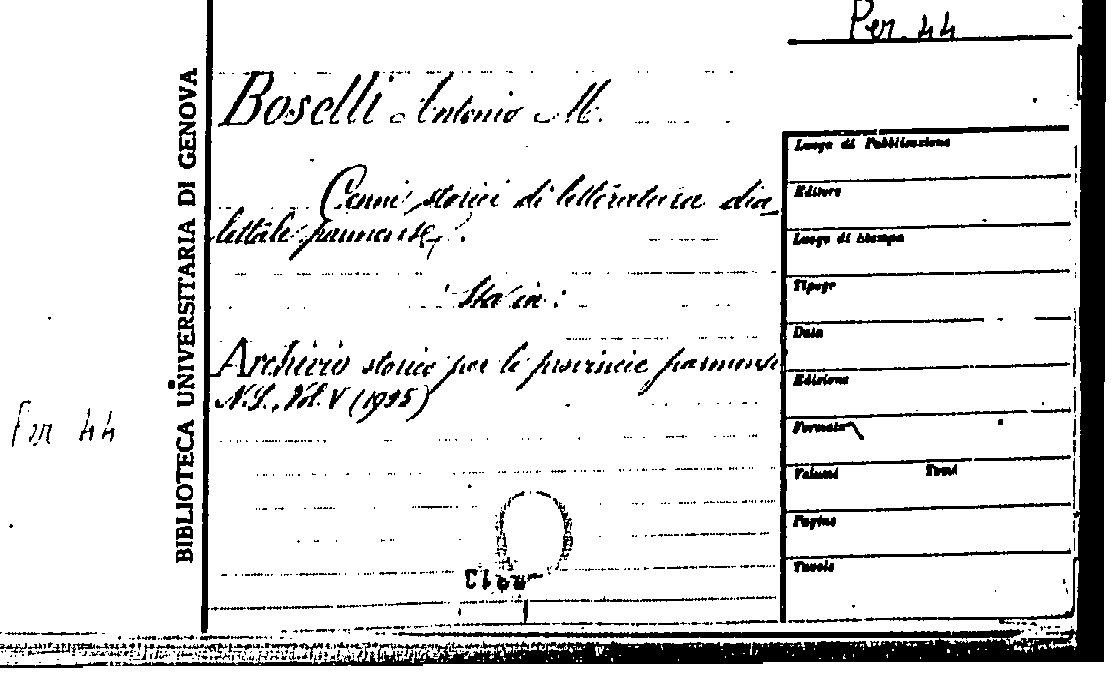 Per. 44
BIBLIOTECA UNIVERSITARIA DI GENOVA
Boselli Antonio M.
Cenni storici di letteratura dia_
lettale parmense.
Sta in:
Archivio storico per le provincie parmensi
N.S., Vol. V (1905)
Per 44
Luogo di Pubblicazione
Editore
Luogo di Stampa
Tipogr
Data
Edizione
Formato
Volumi Tomi
Pagine
Tavole